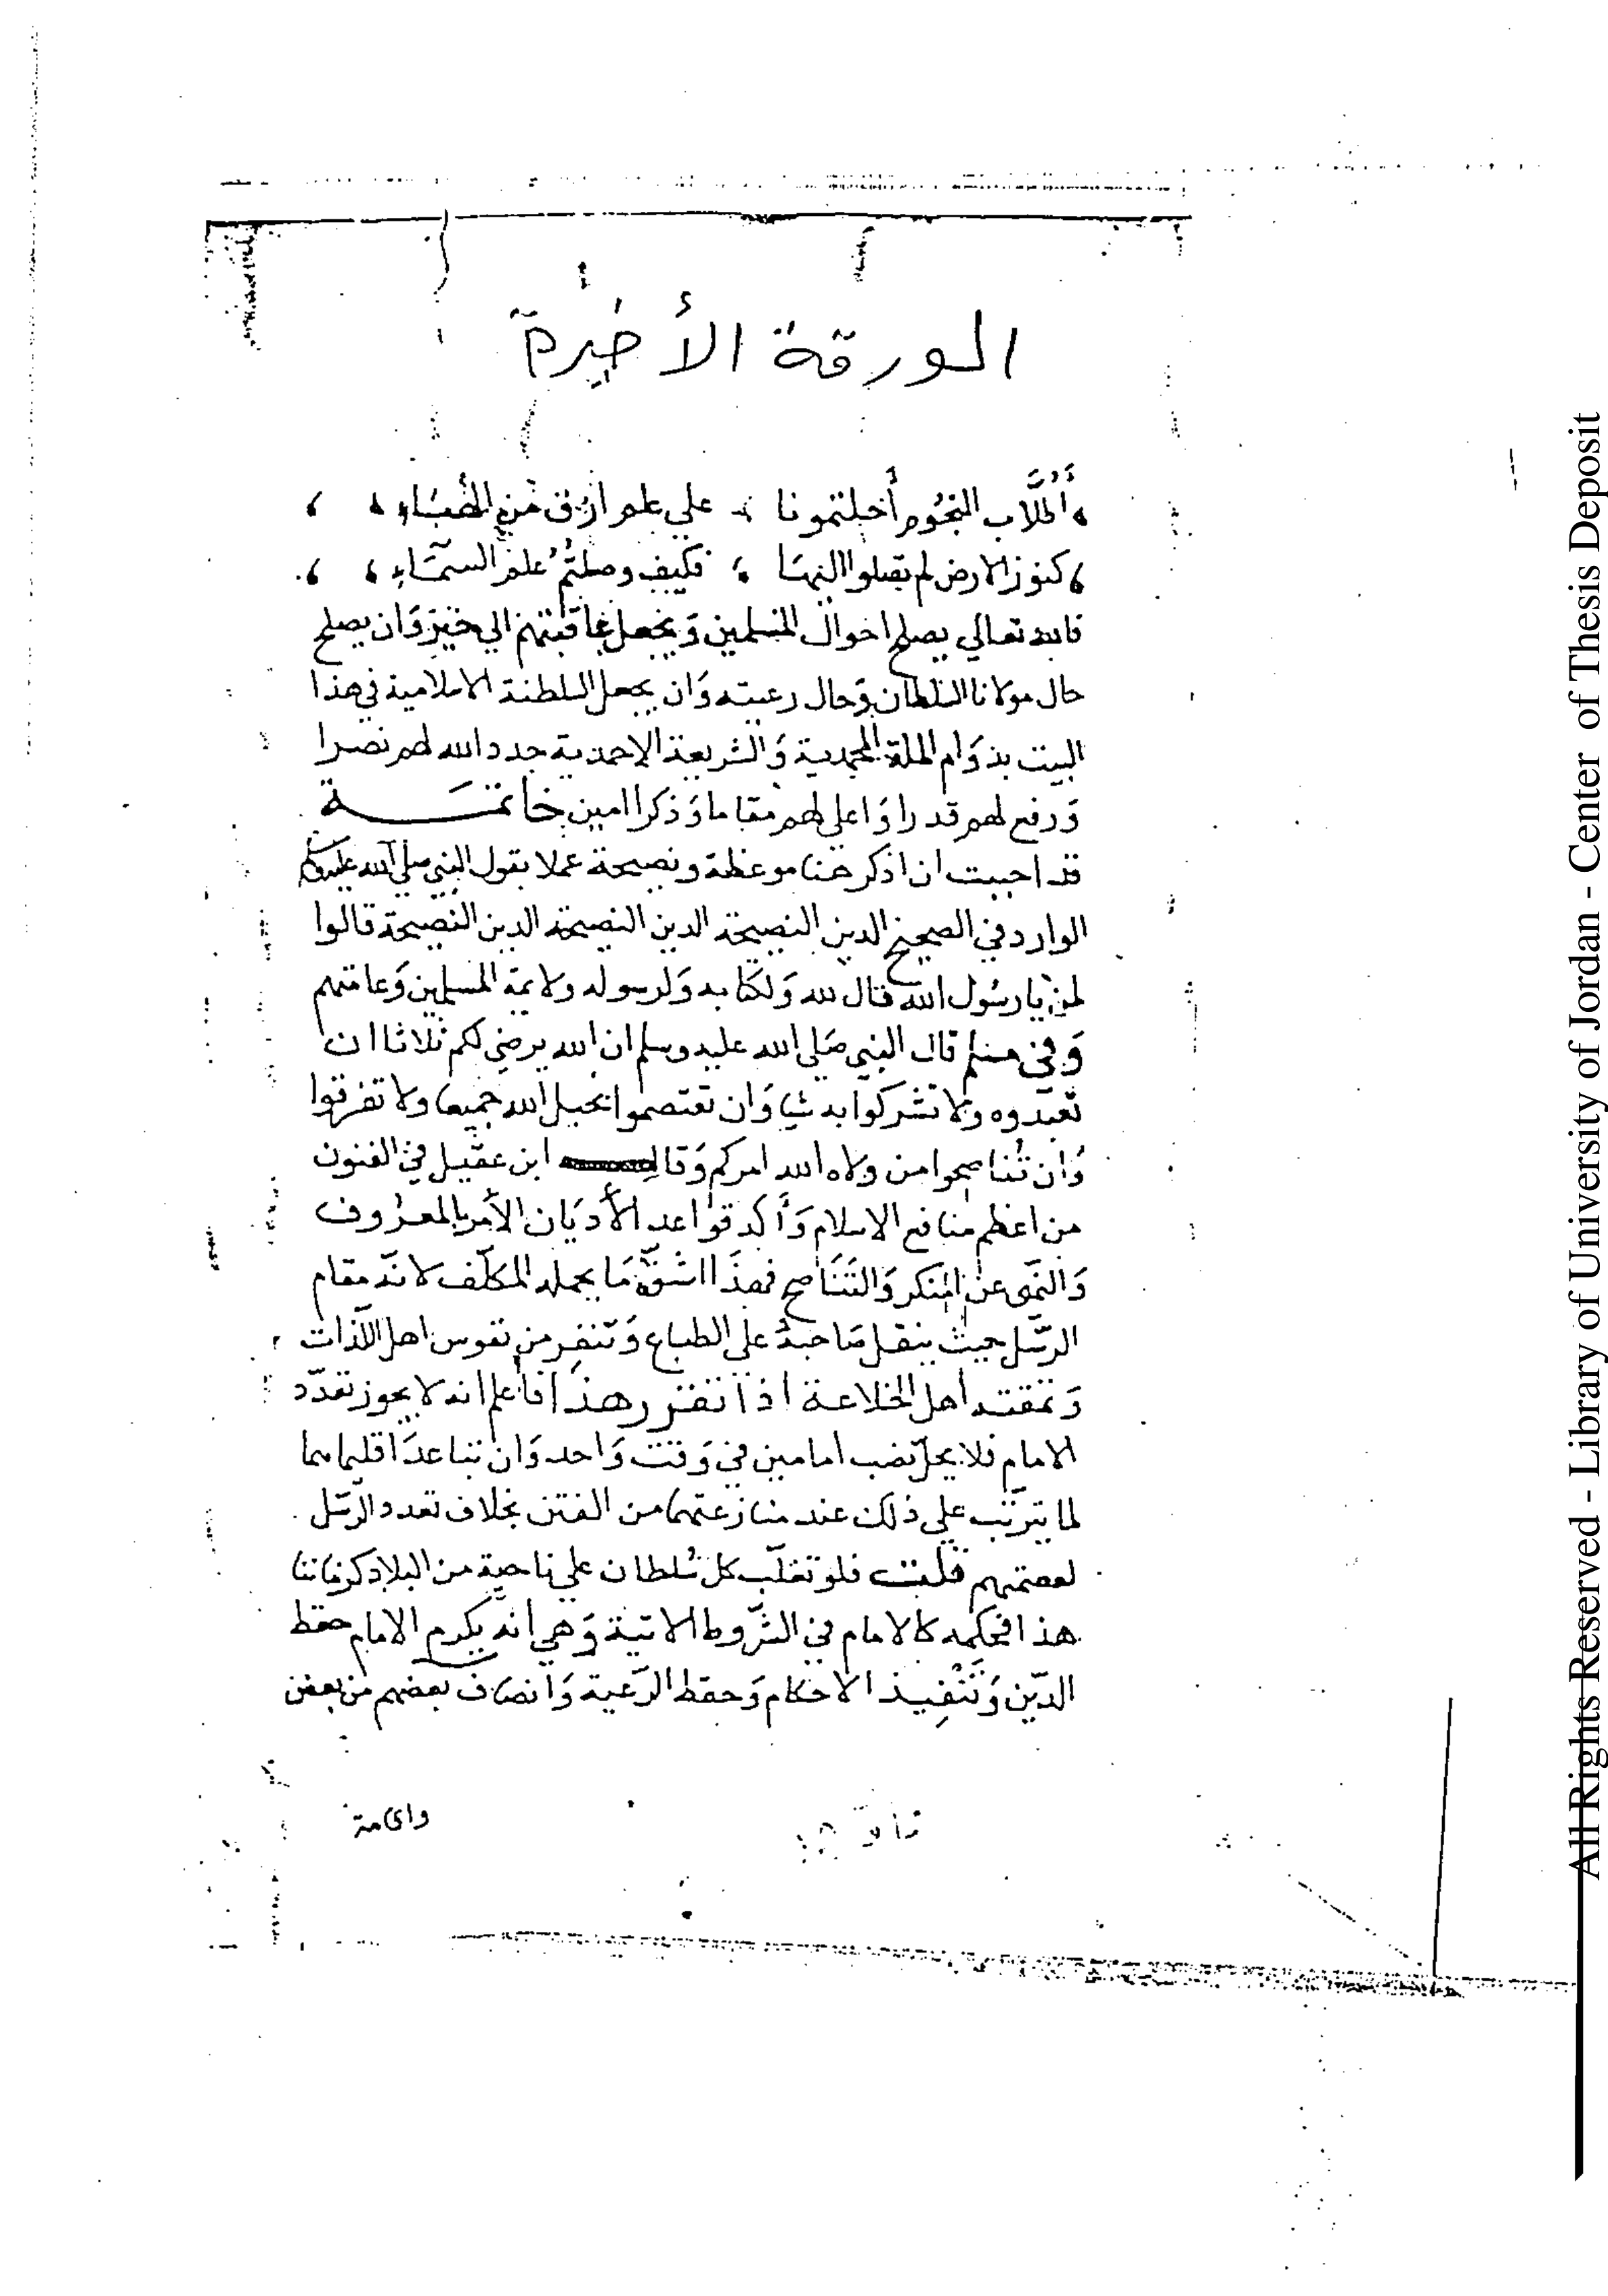 الورقة الأخيرة
أطُلَّاب النجُوم أَحلتمونا ؛ علي علم ارق من الهبَاءِ
كنوز الارض لم تصلوا اليهَا ؛ فكيف وصلتُم علم السمَآءِ
فالله تعالي يصلح احوال المسلمين وَيجعل عاقبتهم الي خير وَان يصلح
حال مولانا السلطان وَحال رعيته وَان يجعل السلطنة الاسلامية في هذا
البيت بدوَام الملة المحمدية وَالشريعة الاحمدية جدد الله لهم نصرا
وَرفع لهم قدرا وَاعلي لهم مقاما وَذكرا امين خاتمَــــة
قد احببت ان اذكر هنا موعظة ونصيحة عملا بقول النبي صلي الله عليه وسلم
الوارد في الصحيح الدين النصيحة الدين النصيحة الدين النصيحة قالوا
لمن يا رسُول الله قال لله وَلكتابه وَلرسوله ولايمة المسلمين وَعامتهم
وَفي مسلم قال النبي صَلي الله عليه وسلم ان الله يرضي لكم ثلاثا ان
تعبدوه ولا تشركوا به شيا وَان تعتصموا بحبل الله جميعا ولا تفرقوا
وَان تُناصحوا من ولاه الله امركم وَقال ابن عقيل في الفنون
من اعظم منافع الاسلام وَأكد قواعد الأديَان الأمر بالمعرُوف
وَالنهَى عن المنكر وَالتنَاصح فهذَا اشقّ مَا يحمله المكلّف لانّه مقام
الرسّل حيث يثقل صَاحبهُ علي الطباع وَتنفِر من نفوس اهل اللّذات
وَتمقته أهل الخلاعة اذا تقرر هذا فاعلم انه لا يجوز تعدّد
الامام فلا يحلّ نصب امامين في وَقت وَاحد وَان تباعدَا قليماهما
لما يترتّب علي ذلك عند منازعتهما من الفتن بخلاف تعدد الرسّل
لعصمتهم قلت فلو تغلّب كل سُلطان علي ناحية من البلاد كزماننا
هذا فحكمه كالامام في الشّروط الاتية وَهي انه يكرم الامام حفظ
الدّين وَتَنْفِيذ الاحكام وَحفظ الرَعية وَانصَاف بعضهم من بعض
واقامة
All Rights Reserved - Library of University of Jordan - Center of Thesis Deposit